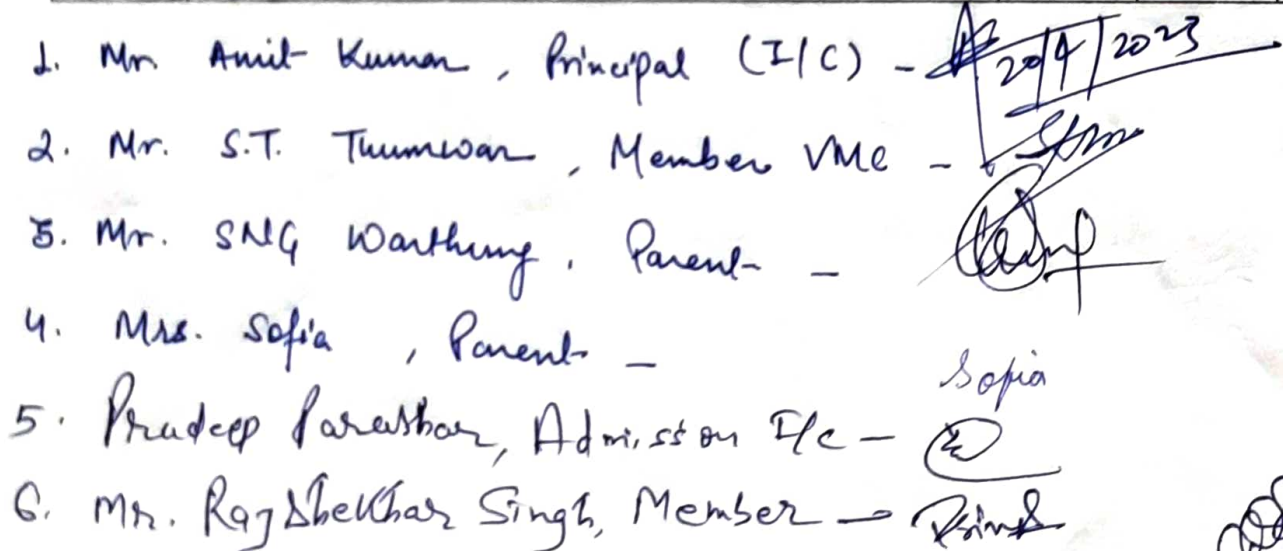 1. Mr. Amit Kumar, Principal (I/C) - 20/4/2023
2. Mr. S.T. Thumwar, Member VMC -
3. Mr. SNG Warthung, Parent -
4. Mrs. Sofia, Parent - Sofia
5. Pradeep Parashar, Admission I/c -
6. Mr. RajShekhar Singh, Member -